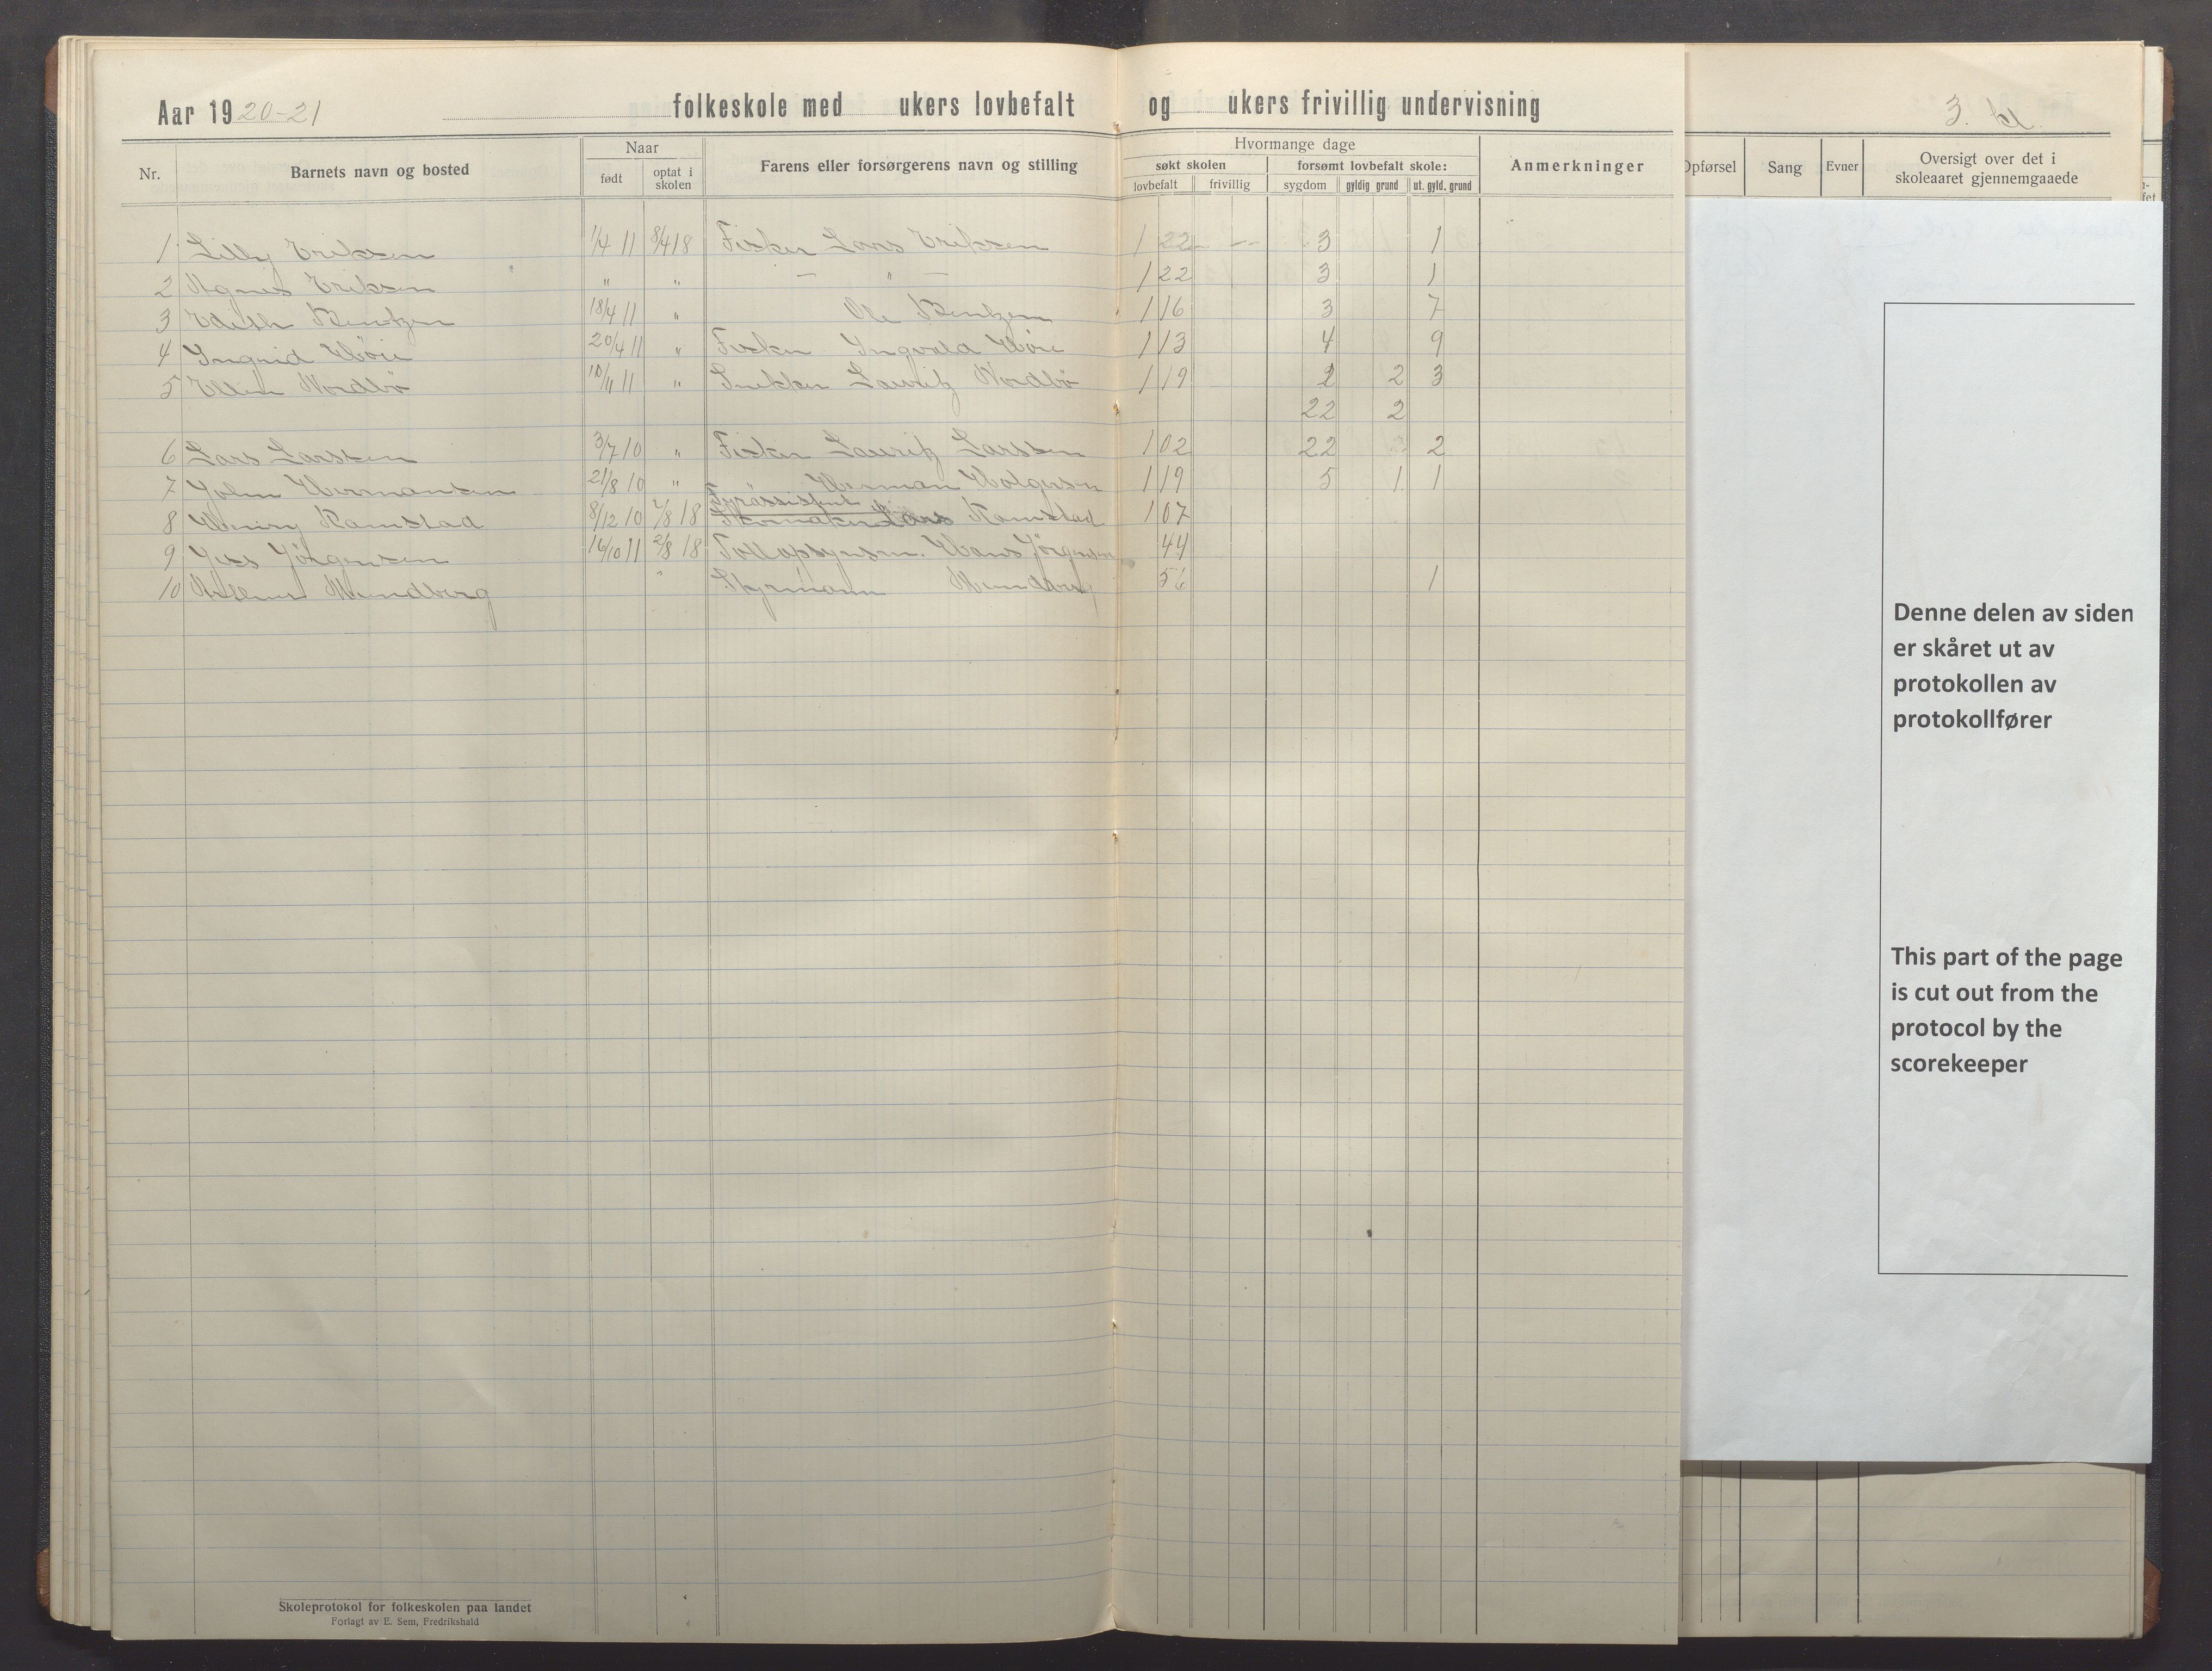 Aar 1920-21 folkeskole med ukers lovbefalt og ukers frivillig undervisning
3. kl.
Nr. Barnets navn og bosted Naar født optat i skolen Farens eller forsørgerens navn og stilling Hvormange dage søkt skolen lovbefalt frivillig forsømt lovbefalt skole: sygdom gyldig grund ut. gyld. grund Anmerkninger Opførsel Sang Evner Oversigt over det i skoleaaret gjennemgaaede
1 Lilly Eriksen 1/4 11 8/4 18 Fisker Lars Eriksen 122 3 1
2 Agnes Eriksen " " — " — 122 3 1
3 Edith Bentzen 18/4 11 " Ole Bentzen 116 3 7
4 Ingrid 20/4 11 " Fisker Ingvald 113 4 9
5 Ellen Nordbö 10/4 11 " Snekker Lauritz Nordbö 119 2 2 3
22 2
6 Lars Larssen 3/7 10 " Fisker Lauritz Larssen 102 22 2
7 John Hermansen 21/8 10 " " Herman Holgersen 119 5 1 1
8 Henry Ramstad 8/12 10 /8 18 Fyrassistent Ramstad 107
9 Jörgensen 16/10 11 2/8 18 Tollopsynsm. Hans Jörgensen 44
10 Mundberg " Styrmann 56 1
Denne delen av siden
er skåret ut av
protokollen av
protokollfører
This part of the page
is cut out from the
protocol by the
scorekeeper
Skoleprotokol for folkeskolen paa landet
Forlagt av E. Sem, Fredrikshald